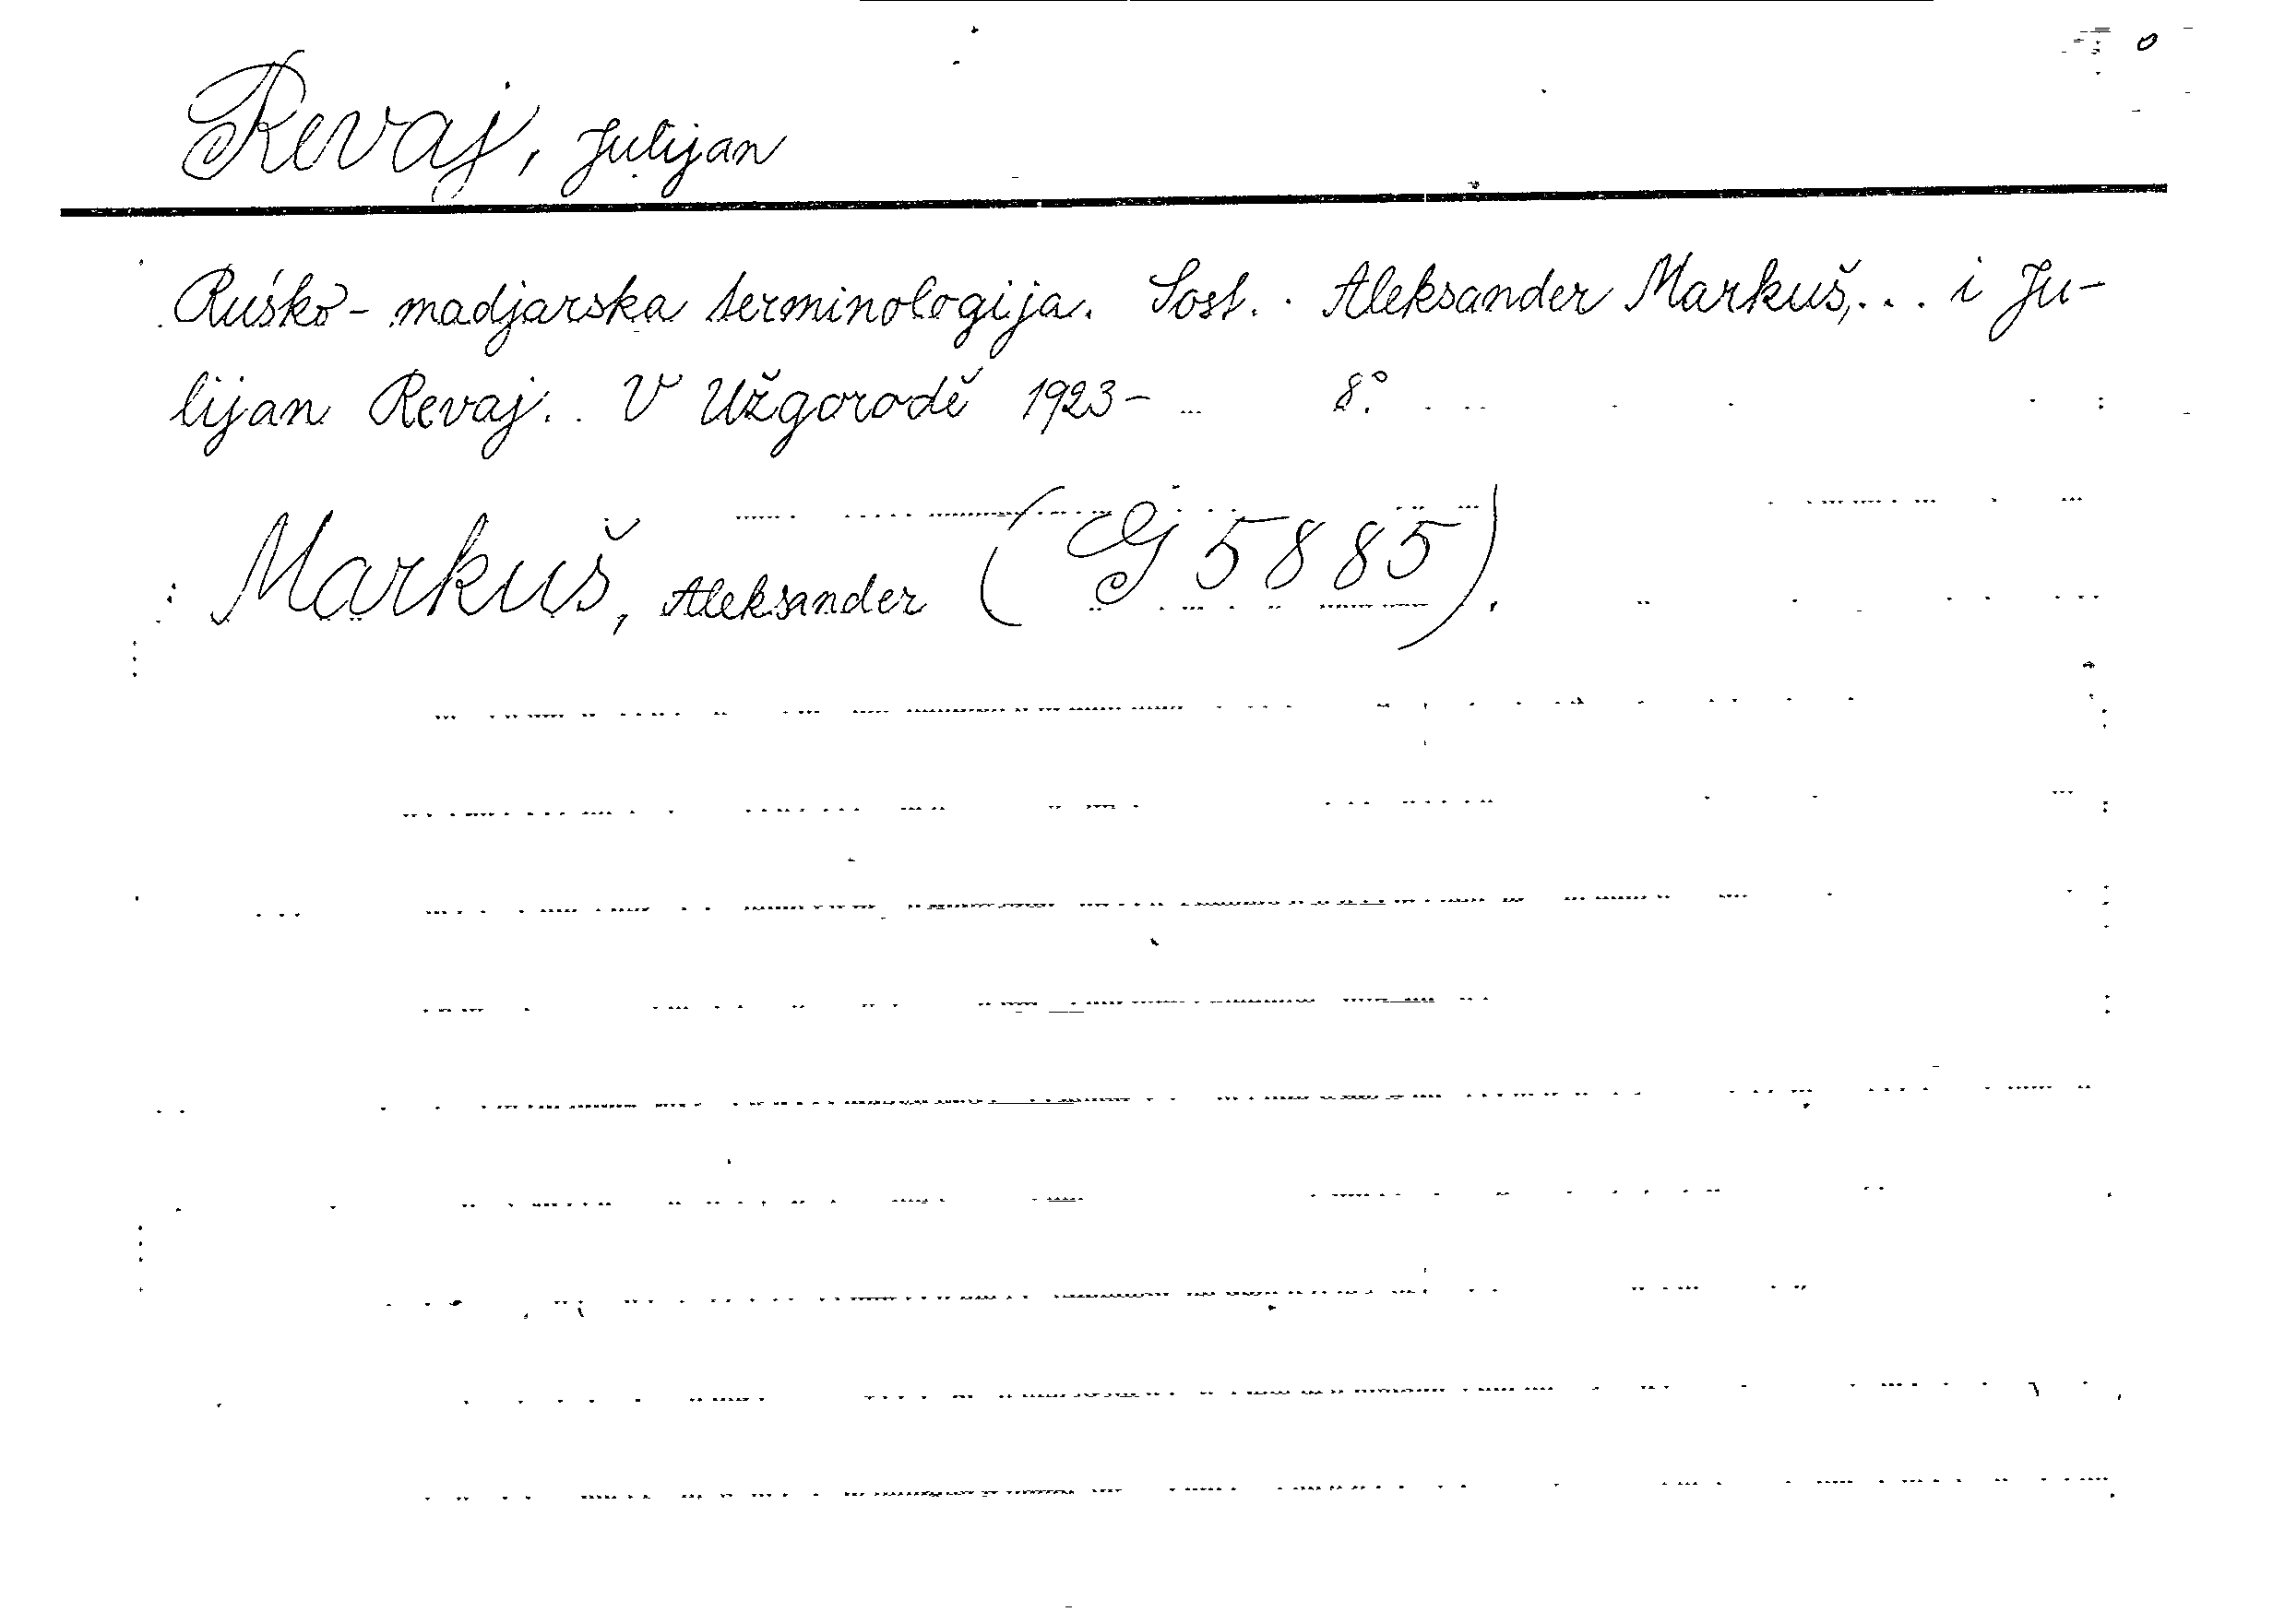 Revaj, Julijan
Ruśko-madjarska terminologija. Sost. Aleksander Markuš,... i Ju-
lijan Revaj. V Užgorodě 1923- 8°.
Markuš, Aleksander (G 5885).